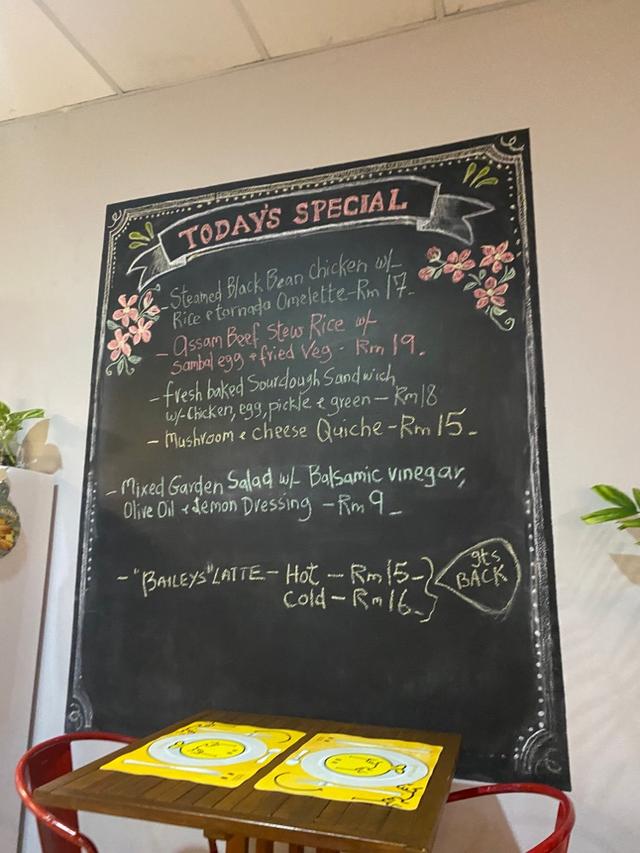 TODAY'S SPECIAL
- Steamed Black Bean Chicken w/-
Rice & tornado Omelette - Rm 17-
- Assam Beef Stew Rice w/-
Sambal egg & fried Veg - Rm 19.
- fresh baked Sourdough Sandwich
w/- Chicken, egg, pickle & green - Rm 18
- Mushroom & cheese Quiche - Rm 15-
- Mixed Garden Salad w/- Balsamic vinegar,
Olive Oil & Lemon Dressing - Rm 9-
- "BAILEYS" LATTE - Hot - Rm 15-
Cold - Rm 16-
Its
BACK